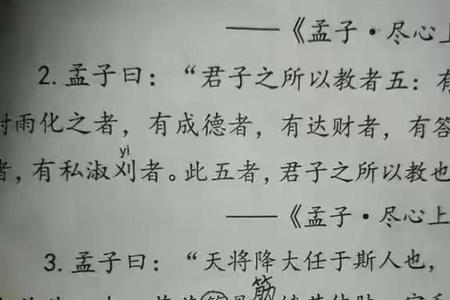 ——《孟子·尽心上
2. 孟子曰：“君子之所以教者五：有
时雨化之者，有成德者，有达财者，有答
yì
者，有私淑刈者。此五者，君子之所以教也
——《孟子·尽心上
3. 孟子曰：“天将降大任于斯人也，
筋